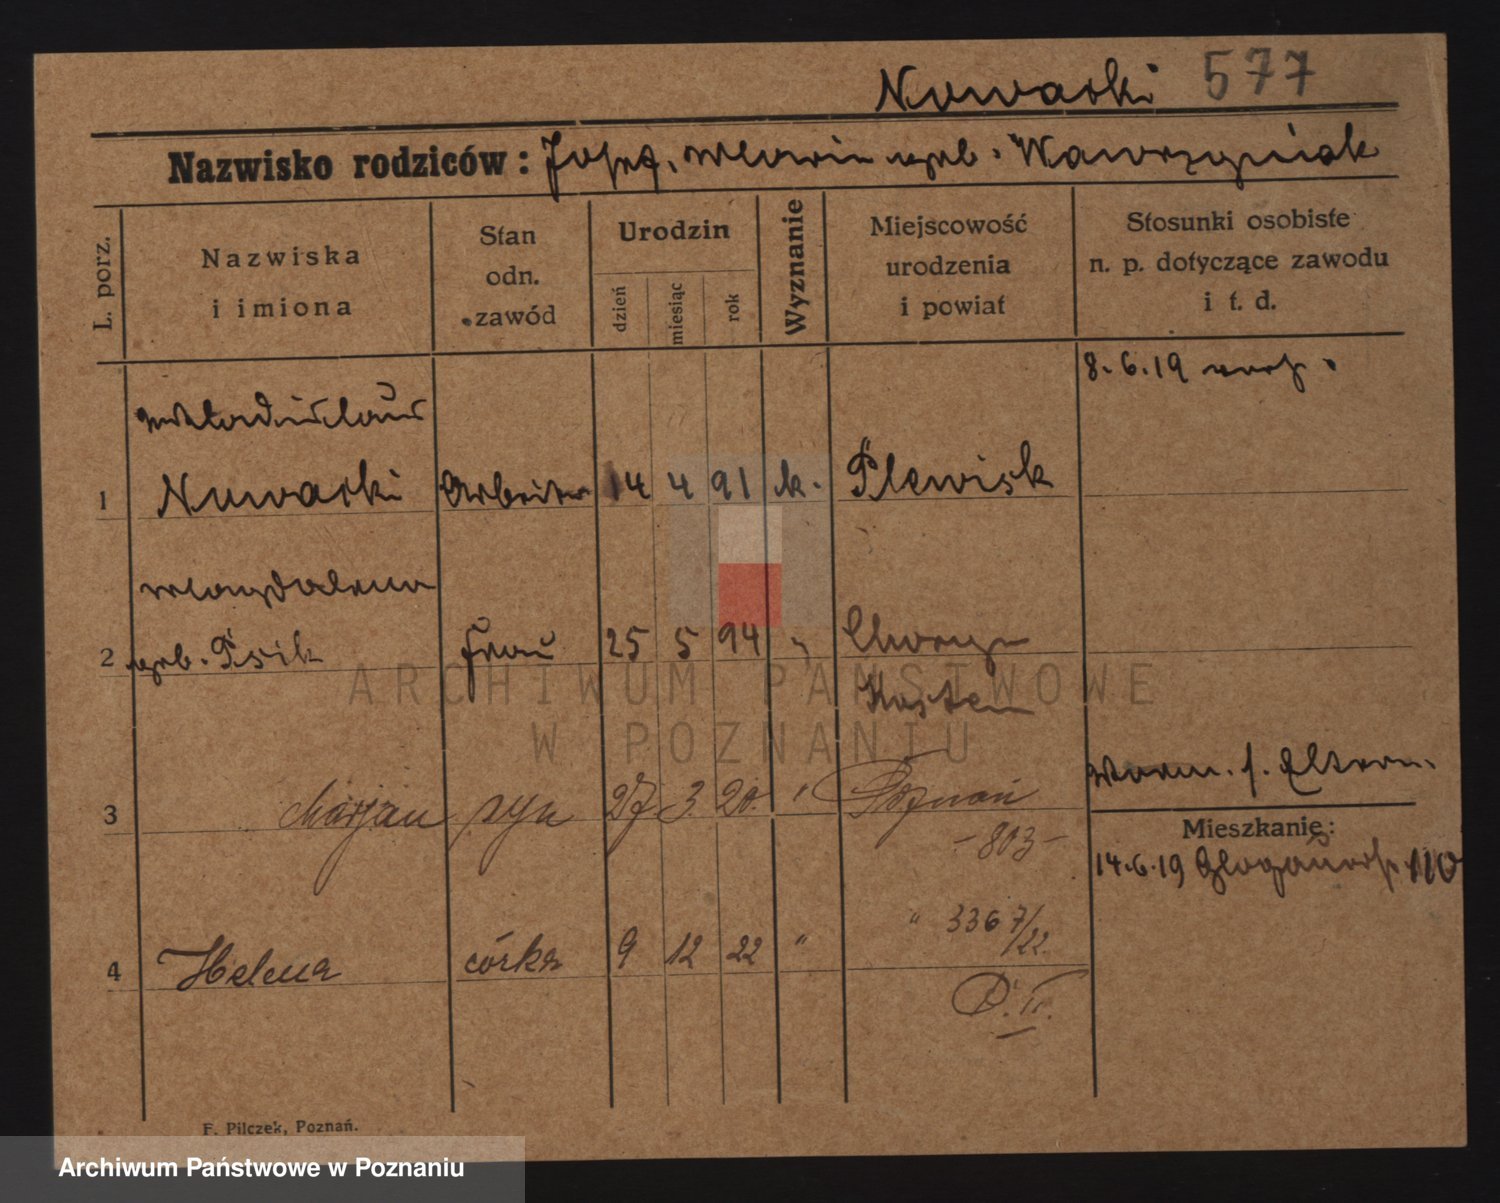 Nowacki 577
Nazwisko rodziców: Josef, Maria geb. Wawrzyniak
L. porz.
Nazwiska
i imiona
Stan
odn.
zawód
Urodzin
dzień
miesiąc
rok
Wyznanie
Miejscowość
urodzenia
i powiat
Stosunki osobiste
n. p. dotyczące zawodu
i t. d.
8.6.19 verh.
Wladislaus
1 Nowacki Arbeiter 14 4 91 k. Plewisk
Magdalena
2 geb. Psik Frau 25 5 94 " Choryn
Kosten
3 Marjan syn 27 3 20. " Poznań
- 803 -
Wohn. b. Eltern.
Mieszkanie:
14.6.19 Glogauerstr. 110
4 Helena córka 9 12 22 " " 3367/22
D. II.
F. Pilczek, Poznań.
ARCHIWUM PAŃSTWOWE
W POZNANIU
Archiwum Państwowe w Poznaniu